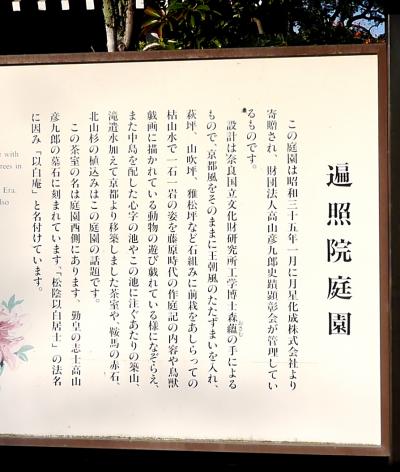 遍照院庭園
この庭園は昭和三十五年一月に月星化成株式会社より
寄贈され、財団法人高山彦九郎史蹟顕彰会が管理してい
るものです。
設計は奈良国立文化財研究所工学博士森蘊の手による
おさむ
もので、京都風をそのままに王朝風のたたずまいを入れ、
萩坪、山吹坪、雅松坪など石組みに前栽をあしらっての
枯山水で一石一岩の姿を藤原時代の作庭記の内容や鳥獣
戯画に描かれている動物の遊び戯れている様になぞらえ、
また中島を配した心字の池やこの池に注ぐあたりの築山、
滝遣水加えて京都より移築しました茶室や、鞍馬の赤石、
北山杉の植込みはこの庭園の話題です。
この茶室の名は庭園西側にあります、勤皇の志士高山
彦九郎の墓石に刻まれています「松陰以白居士」の法名
に因み『以白庵』と名付けています。
with
rees in
Era.
lso